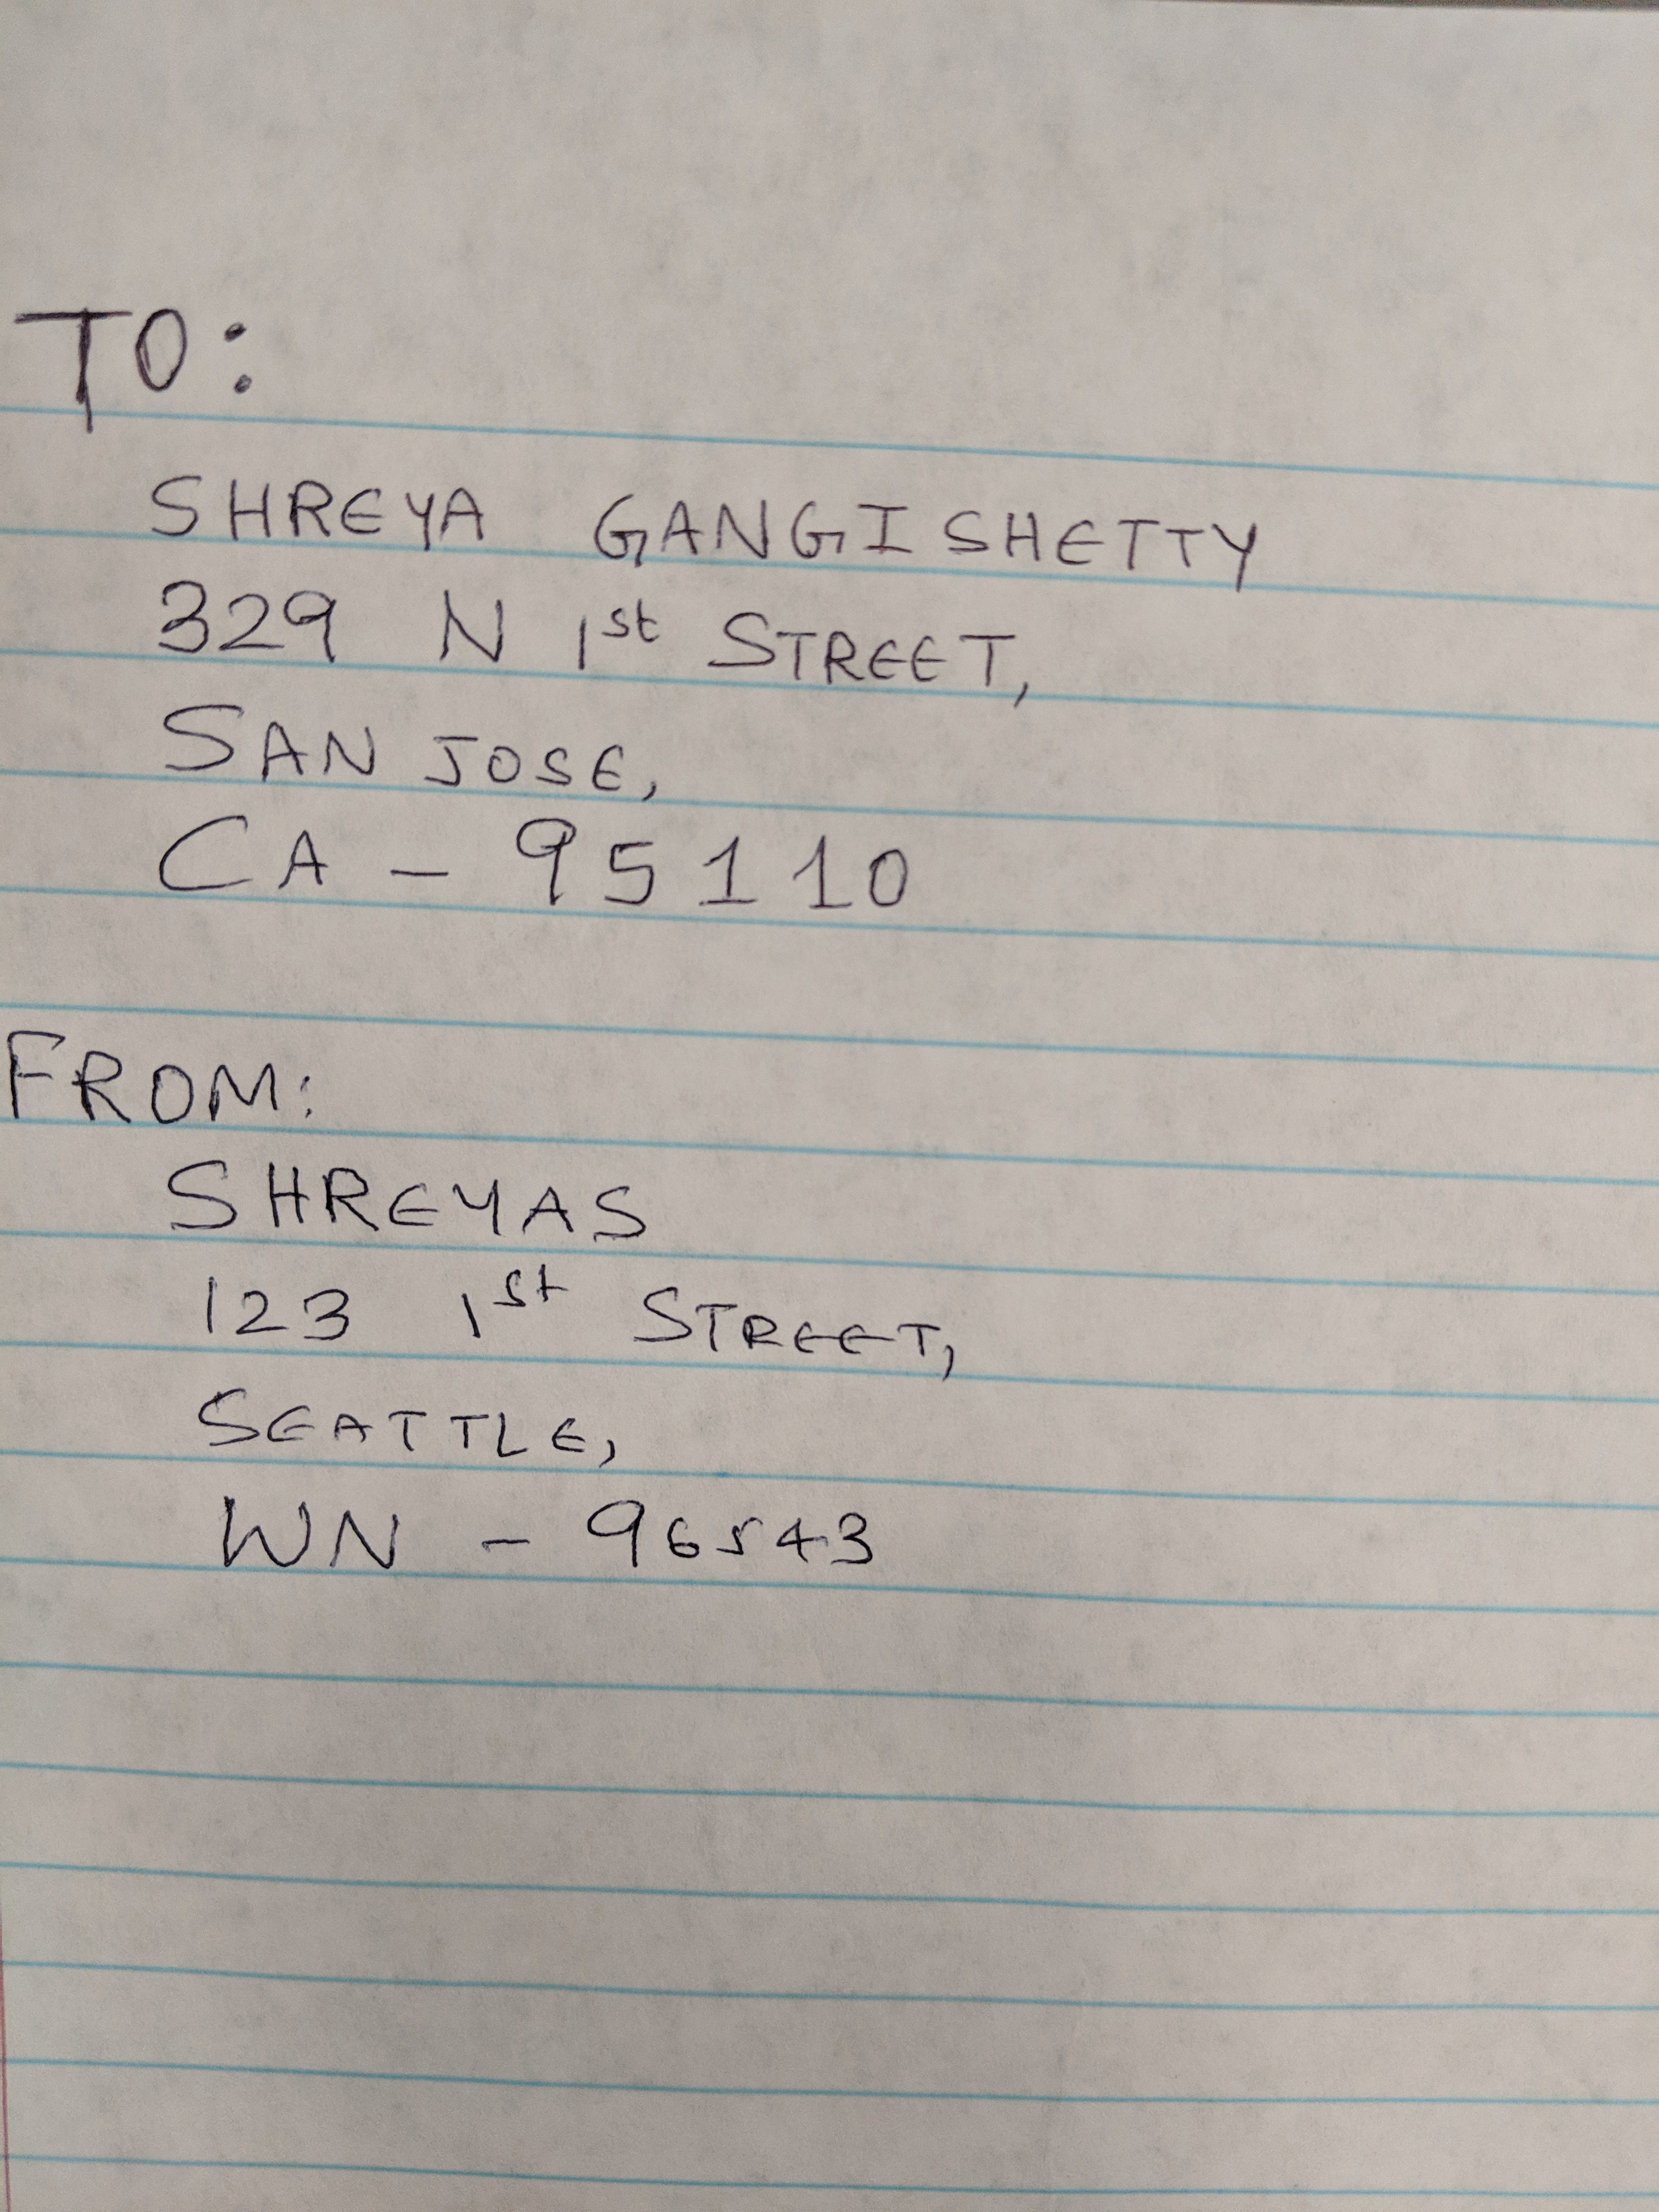 TO:
SHREYA GANGISHETTY
329 N 1st STREET,
SAN JOSE,
CA - 95110
FROM:
SHREYAS
123 1st STREET,
SEATTLE,
WN - 96543